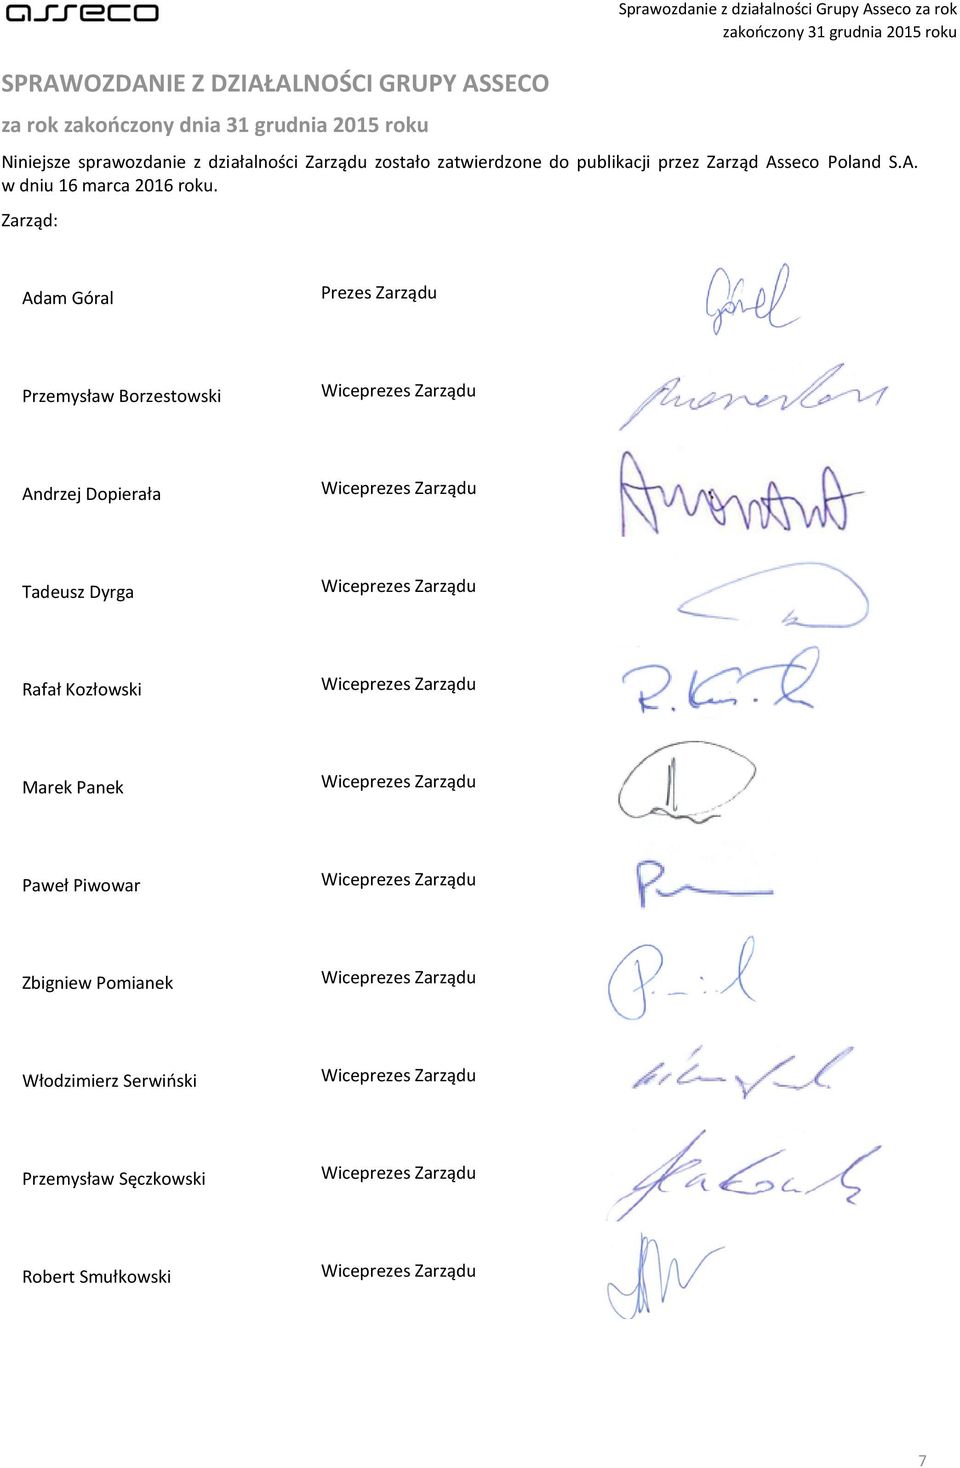 asseco
Sprawozdanie z działalności Grupy Asseco za rok
zakończony 31 grudnia 2015 roku
SPRAWOZDANIE Z DZIAŁALNOŚCI GRUPY ASSECO
za rok zakończony dnia 31 grudnia 2015 roku
Niniejsze sprawozdanie z działalności Zarządu zostało zatwierdzone do publikacji przez Zarząd Asseco Poland S.A.
w dniu 16 marca 2016 roku.
Zarząd:
Adam Góral Prezes Zarządu Góral
Przemysław Borzestowski Wiceprezes Zarządu
Andrzej Dopierała Wiceprezes Zarządu
Tadeusz Dyrga Wiceprezes Zarządu
Rafał Kozłowski Wiceprezes Zarządu
Marek Panek Wiceprezes Zarządu
Paweł Piwowar Wiceprezes Zarządu
Zbigniew Pomianek Wiceprezes Zarządu
Włodzimierz Serwiński Wiceprezes Zarządu
Przemysław Sęczkowski Wiceprezes Zarządu
Robert Smułkowski Wiceprezes Zarządu
7